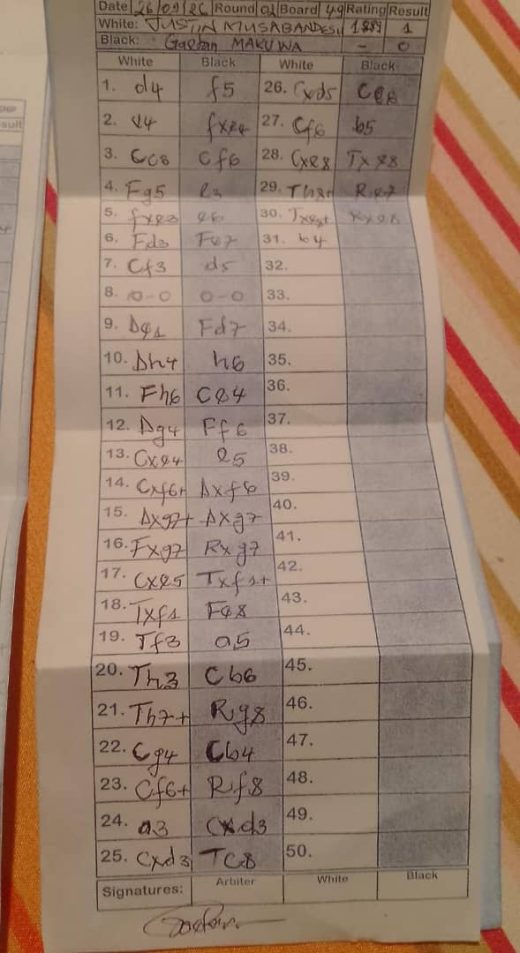 Date 26/09/26 Round 01 Board 49 Rating Result
White: JUSTIN MUSABANDESU 1889 1
Black: Gaetan MAKUWA - 0
White Black White Black
1. d4 f5 26. Cxd5
2. e4 fxe4 27. Cf6 b5
3. Cc3 Cf6 28. Cxe8 Txe8
4. Fg5 e3 29. Th8+ Re7
5. fxe3 e6 30. Txe8+ Rxe8
6. Fd3 Fe7 31. b4
7. Cf3 d5 32.
8. 0-0 0-0 33.
9. De1 Fd7 34.
10. Dh4 h6 35.
11. Fh6 Ce4 36.
12. Dg4 Ff6 37.
13. Cxe4 e5 38.
14. Cxf6+ Dxf6 39.
15. Dxg7+ Dxg7 40.
16. Fxg7 Rxg7 41.
17. Cxe5 Txf1+ 42.
18. Txf1 Fe8 43.
19. Tf3 a5 44.
20. Th3 Cb6 45.
21. Th7+ Rg8 46.
22. Cg4 Cb4 47.
23. Cf6+ Rf8 48.
24. a3 Cxd3 49.
25. Cxd3 Tc8 50.
Signatures: Arbiter White Black